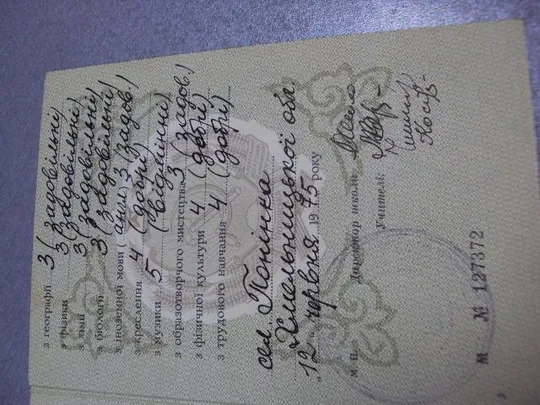 з географії 3 (задовільні)
з фізики 3 (задовільні)
з хімії 3 (задовільні)
з біології 3 (задовільні)
з іноземної мови (англ) 3 (задов.)
з креслення 4 (добрі)
з музики 5 (відмінні)
з образотворчого мистецтва 3 (задов)
з фізичної культури 4 (добрі)
з трудового навчання 4 (добрі)
сел. Понінка
Хмельницької обл.
„12” червня 1975 року
М. П. Директор школи
Учителі:
М № 127372